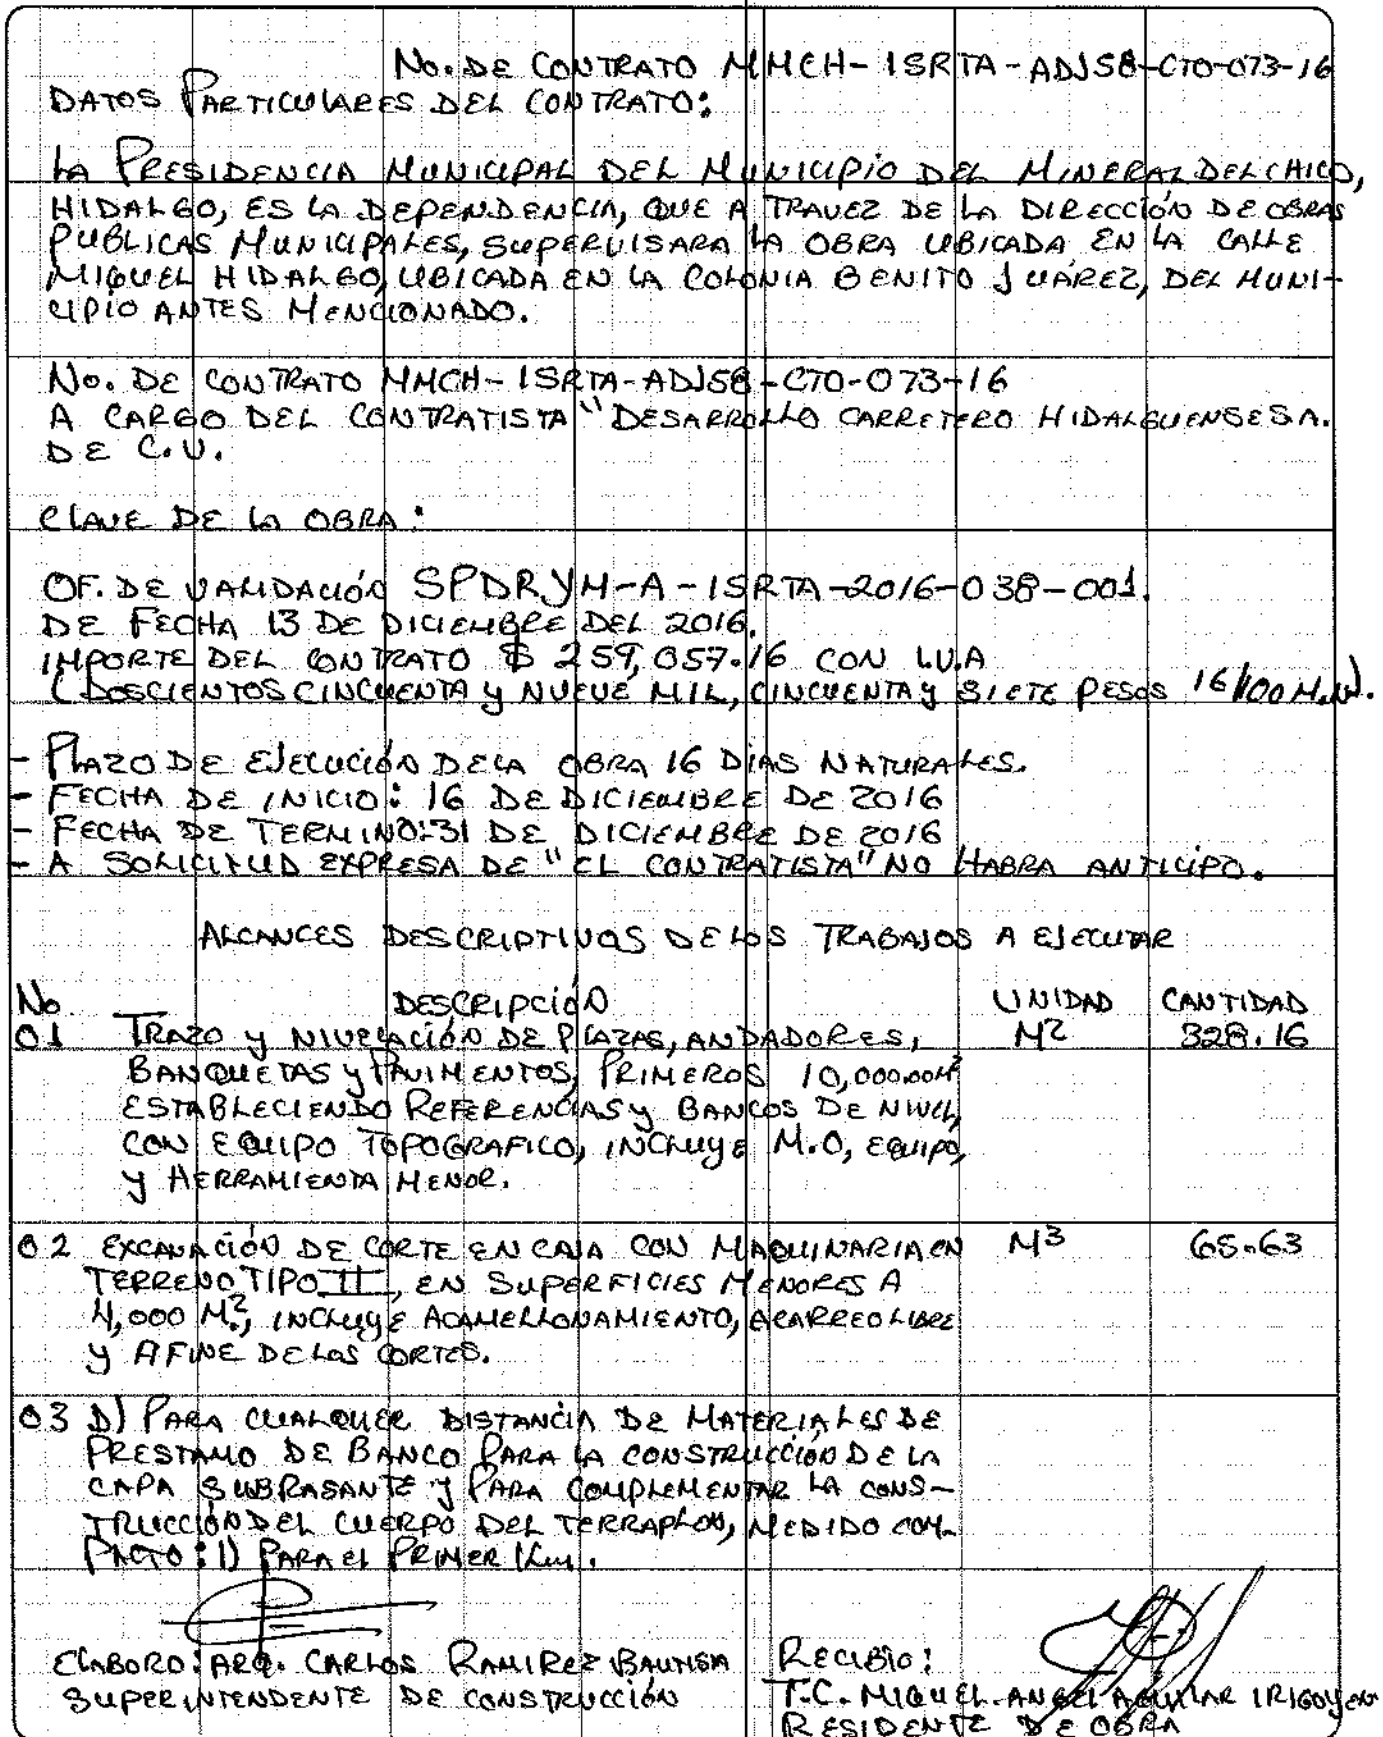 No. DE CONTRATO MMCH-ISRTA-ADJ58-CTO-073-16
DATOS PARTICULARES DEL CONTRATO:
LA PRESIDENCIA MUNICIPAL DEL MUNICIPIO DEL MINERAL DEL CHICO,
HIDALGO, ES LA DEPENDENCIA, QUE A TRAVEZ DE LA DIRECCIÓN DE OBRAS
PUBLICAS MUNICIPALES, SUPERVISARA LA OBRA UBICADA EN LA CALLE
MIGUEL HIDALGO, UBICADA EN LA COLONIA BENITO JUÁREZ, DEL MUNI-
CIPIO ANTES MENCIONADO.
No. DE CONTRATO MMCH-ISRTA-ADJ58-CTO-073-16
A CARGO DEL CONTRATISTA "DESARROLLO CARRETERO HIDALGUENSE S.A.
DE C.V.
CLAVE DE LA OBRA:
OF. DE VALIDACIÓN SPDRYM-A-ISRTA-2016-038-001.
DE FECHA 13 DE DICIEMBRE DEL 2016.
IMPORTE DEL CONTRATO $ 259,057.16 CON I.V.A
(DOSCIENTOS CINCUENTA Y NUEVE MIL, CINCUENTA Y SIETE PESOS 16/100 M.N).
- PLAZO DE EJECUCIÓN DE LA OBRA 16 DÍAS NATURALES.
- FECHA DE INICIO: 16 DE DICIEMBRE DE 2016
- FECHA DE TERMINO: 31 DE DICIEMBRE DE 2016
- A SOLICITUD EXPRESA DE "EL CONTRATISTA" NO HABRA ANTICIPO.
ALCANCES DESCRIPTIVOS DE LOS TRABAJOS A EJECUTAR
No DESCRIPCIÓN UNIDAD CANTIDAD
01 TRAZO Y NIVELACIÓN DE PLAZAS, ANDADORES, M2 328.16
BANQUETAS Y PAVIMENTOS, PRIMEROS 10,000.00M²
ESTABLECIENDO REFERENCIAS Y BANCOS DE NIVEL,
CON EQUIPO TOPOGRAFICO, INCLUYE M.O, EQUIPO,
Y HERRAMIENTA MENOR.
02 EXCAVACIÓN DE CORTE EN CAJA CON MAQUINARIA EN M3 65.63
TERRENO TIPO II, EN SUPERFICIES MENORES A
4,000 M², INCLUYE ACAMELLONAMIENTO, ACARREO LIBRE
Y AFINE DE LOS CORTES.
03 D) PARA CUALQUER DISTANCIA DE MATERIALES DE
PRESTAMO DE BANCO PARA LA CONSTRUCCIÓN DE LA
CAPA SUBRASANTE Y PARA COMPLEMENTAR LA CONS-
TRUCCIÓN DEL CUERPO DEL TERRAPLEN, MEDIDO COM-
PACTO: 1) PARA EL PRIMER Km.
ELABORO: ARQ. CARLOS RAMIREZ BAUTISTA
SUPERINTENDENTE DE CONSTRUCCIÓN
RECIBIO:
T.C. MIGUEL ANGEL AGUILAR IRIGOYEN
RESIDENTE DE OBRA